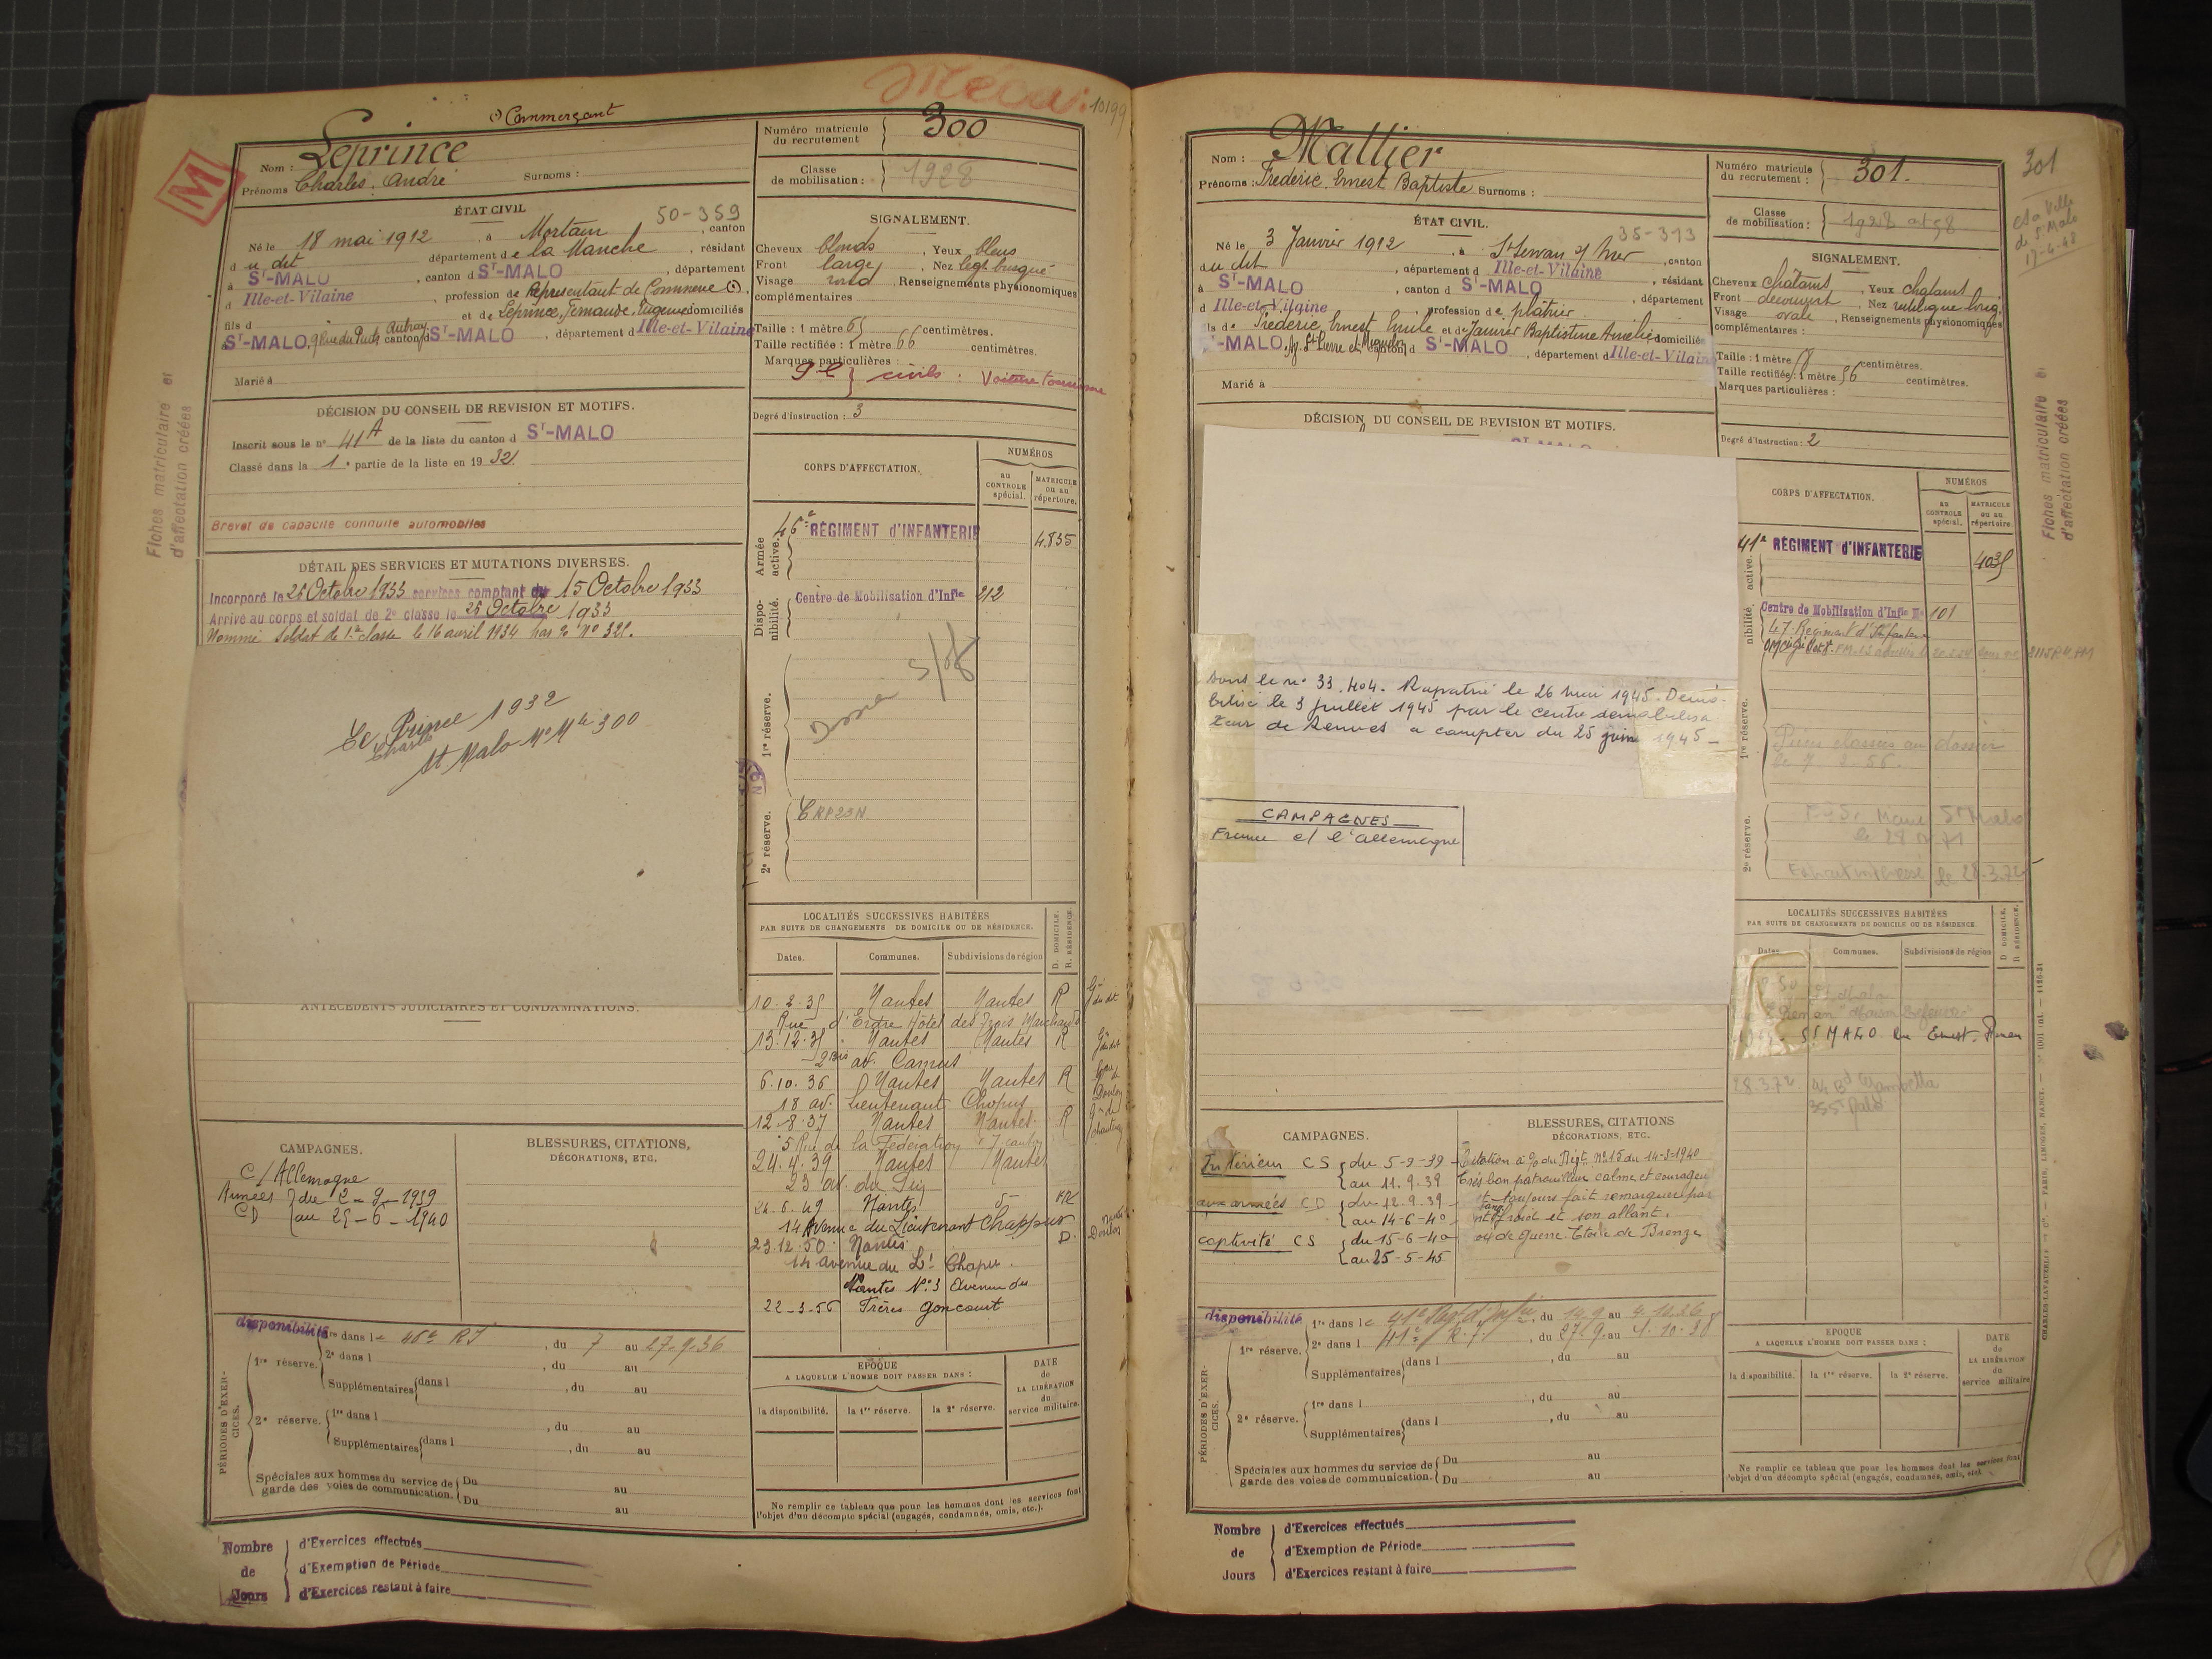 (1) Commerçant
10199
M
Nom : Leprince
Prénoms Charles, André Surnoms :
Numéro matricule du recrutement 300
Classe de mobilisation : 1928
ÉTAT CIVIL 50-359
Né le 18 mai 1912, à Mortain, canton
du dit département de la Manche, résidant
à St-MALO, canton d St-MALO, département
d Ille-et-Vilaine, profession de Représentant de Commerce (1),
fils d et de Leprince, Fernande, Eugénie domiciliés
à St-MALO, 9 Rue du Puits Aubray canton d St-MALO, département d Ille-et-Vilaine
Marié à
SIGNALEMENT.
Cheveux blonds, Yeux bleus
Front large, Nez légt busqué
Visage rond, Renseignements physionomiques
complémentaires
Taille : 1 mètre 65 centimètres.
Taille rectifiée : 1 mètre 66 centimètres.
Marques particulières :
civils : Voiture tourisme
Degré d'instruction : 3
DÉCISION DU CONSEIL DE REVISION ET MOTIFS.
Inscrit sous le n° 41A de la liste du canton d St-MALO
Classé dans la 1e partie de la liste en 1932
Brevet de capacité conduite automobiles
Fiches matriculaire et
d'affectation créées
DÉTAIL DES SERVICES ET MUTATIONS DIVERSES.
Incorporé le 25 Octobre 1933 services comptant du 15 Octobre 1933
Arrivé au corps et soldat de 2e classe le 25 Octobre 1933
Nommé soldat de 1ère classe le 16 avril 1934
Le Prince 1932
Charles
St Malo No Mle 300
CORPS D'AFFECTATION.
NUMÉROS
au CONTROLE spécial.
MATRICULE ou au répertoire.
Armée active.
46e RÉGIMENT d'INFANTERIE 4.835
Disponibilité.
Centre de Mobilisation d'Infie 212
1re réserve.
2e réserve.
LOCALITÉS SUCCESSIVES HABITÉES
PAR SUITE DE CHANGEMENTS DE DOMICILE OU DE RÉSIDENCE.
Dates. Communes. Subdivisions de région D. DOMICILE. R. RÉSIDENCE.
10.2.35 Nantes Nantes R
Rue d'Erdre Hôtel des Trois Marchands
13.12.35 Nantes Nantes R
2 bis av. Camus
6.10.36 Nantes Nantes R
18 av. Lieutenant Chapus
12.8.37 Nantes Nantes R
5 Rue de la Fédération
24.4.39 Nantes Nantes
23 av. du
24.6.49 Nantes
14 Avenue du Lieutenant Chappus
23.12.50 Nantes D.
14 avenue du Lt Chapu.
Nantes N°3 Avenue des
22-3-56 Frères Goncourt
ANTÉCÉDENTS JUDICIAIRES ET CONDAMNATIONS.
CAMPAGNES.
C/Allemagne
Armées du 2-9-1939
CD au 25-6-1940
BLESSURES, CITATIONS,
DÉCORATIONS, ETC.
PÉRIODES D'EXERCICES.
disponibilité
1re réserve. 1re dans le 46e RI, du 7 au 27-9-36
2e dans l , du au
Supplémentaires dans l , du au
2e réserve. 1re dans l , du au
Supplémentaires dans l , du au
Spéciales aux hommes du service de Du au
garde des voies de communication. Du au
EPOQUE
A LAQUELLE L'HOMME DOIT PASSER DANS :
la disponibilité. la 1re réserve. la 2e réserve.
DATE de LA LIBÉRATION du service militaire.
Ne remplir ce tableau que pour les hommes dont les services font
l'objet d'un décompte spécial (engagés, condamnés, omis, etc.).
Nombre de Jours
d'Exercices effectués
d'Exemption de Période
d'Exercices restant à faire
Nom : Mallier
Prénoms : Frédéric, Ernest Baptiste Surnoms :
Numéro matricule du recrutement : 301.
301
Classe de mobilisation : 1928
ÉTAT CIVIL. 35-313
Né le 3 Janvier 1912, à St Servan s/ Mer, canton
du dit, département d Ille-et-Vilaine, résidant
à St-MALO, canton d St-MALO, département
d Ille-et-Vilaine, profession de plâtrier
fils de Frédéric, Ernest Emile et de Janvier Baptistine Amélie domiciliés
St-MALO, St Pierre et Miquelon canton d St-MALO, département d Ille-et-Vilaine
Marié à
SIGNALEMENT.
Cheveux châtains, Yeux châtains
Front découvert, Nez rectiligne
Visage ovale, Renseignements physionomiques
complémentaires :
Taille : 1 mètre centimètres.
Taille rectifiée : 1 mètre 56 centimètres.
Marques particulières :
Degré d'instruction : 2
DÉCISION DU CONSEIL DE REVISION ET MOTIFS.
Fiches matriculaire et
d'affectation créées
sous le n° 33.404. Rapatrié le 26 mai 1945. Démo-
bilisé le 3 juillet 1945 par le centre démobilisa
teur de Rennes à compter du 25 juin 1945
CAMPAGNES
France c/ l'Allemagne
CORPS D'AFFECTATION.
NUMÉROS
au CONTROLE spécial.
MATRICULE ou au répertoire.
active.
41e RÉGIMENT d'INFANTERIE
nibilité.
Centre de Mobilisation d'Infie No 101
47e Régiment d'Infanterie
1re réserve.
Pièces classées au dossier
2e réserve.
LOCALITÉS SUCCESSIVES HABITÉES
PAR SUITE DE CHANGEMENTS DE DOMICILE OU DE RÉSIDENCE.
Dates. Communes. Subdivisions de région D. DOMICILE. R. RÉSIDENCE.
St MALO rue Ernest Renan
28.3.72 44 Bd Gambetta
CAMPAGNES.
Intérieur CS du 5-9-39
au 11.9.39
aux armées CD du 12.9.39
au 14-6-40
captivité CS du 15-6-40
au 25-5-45
BLESSURES, CITATIONS
DÉCORATIONS, ETC.
Citation à % du Régt n° 15 du 14-3-1940
Très bon patrouilleur calme et courageux
toujours fait remarquer par
sang froid et son allant.
de guerre. Etoile de Bronze
PÉRIODES D'EXERCICES.
disponibilité
1re réserve. 1re dans le 41e Régt d'Infie, du 14.9 au 4.10.36
2e dans l 41e R.I., du 27.9 au 4.10.38
Supplémentaires dans l , du au
2e réserve. 1re dans l , du au
Supplémentaires dans l , du au
Spéciales aux hommes du service de Du au
garde des voies de communication. Du au
EPOQUE
A LAQUELLE L'HOMME DOIT PASSER DANS :
la disponibilité. la 1re réserve. la 2e réserve.
DATE de LA LIBÉRATION du service militaire
Ne remplir ce tableau que pour les hommes dont les services font
l'objet d'un décompte spécial (engagés, condamnés, omis, etc.).
Nombre de Jours
d'Exercices effectués
d'Exemption de Période
d'Exercices restant à faire